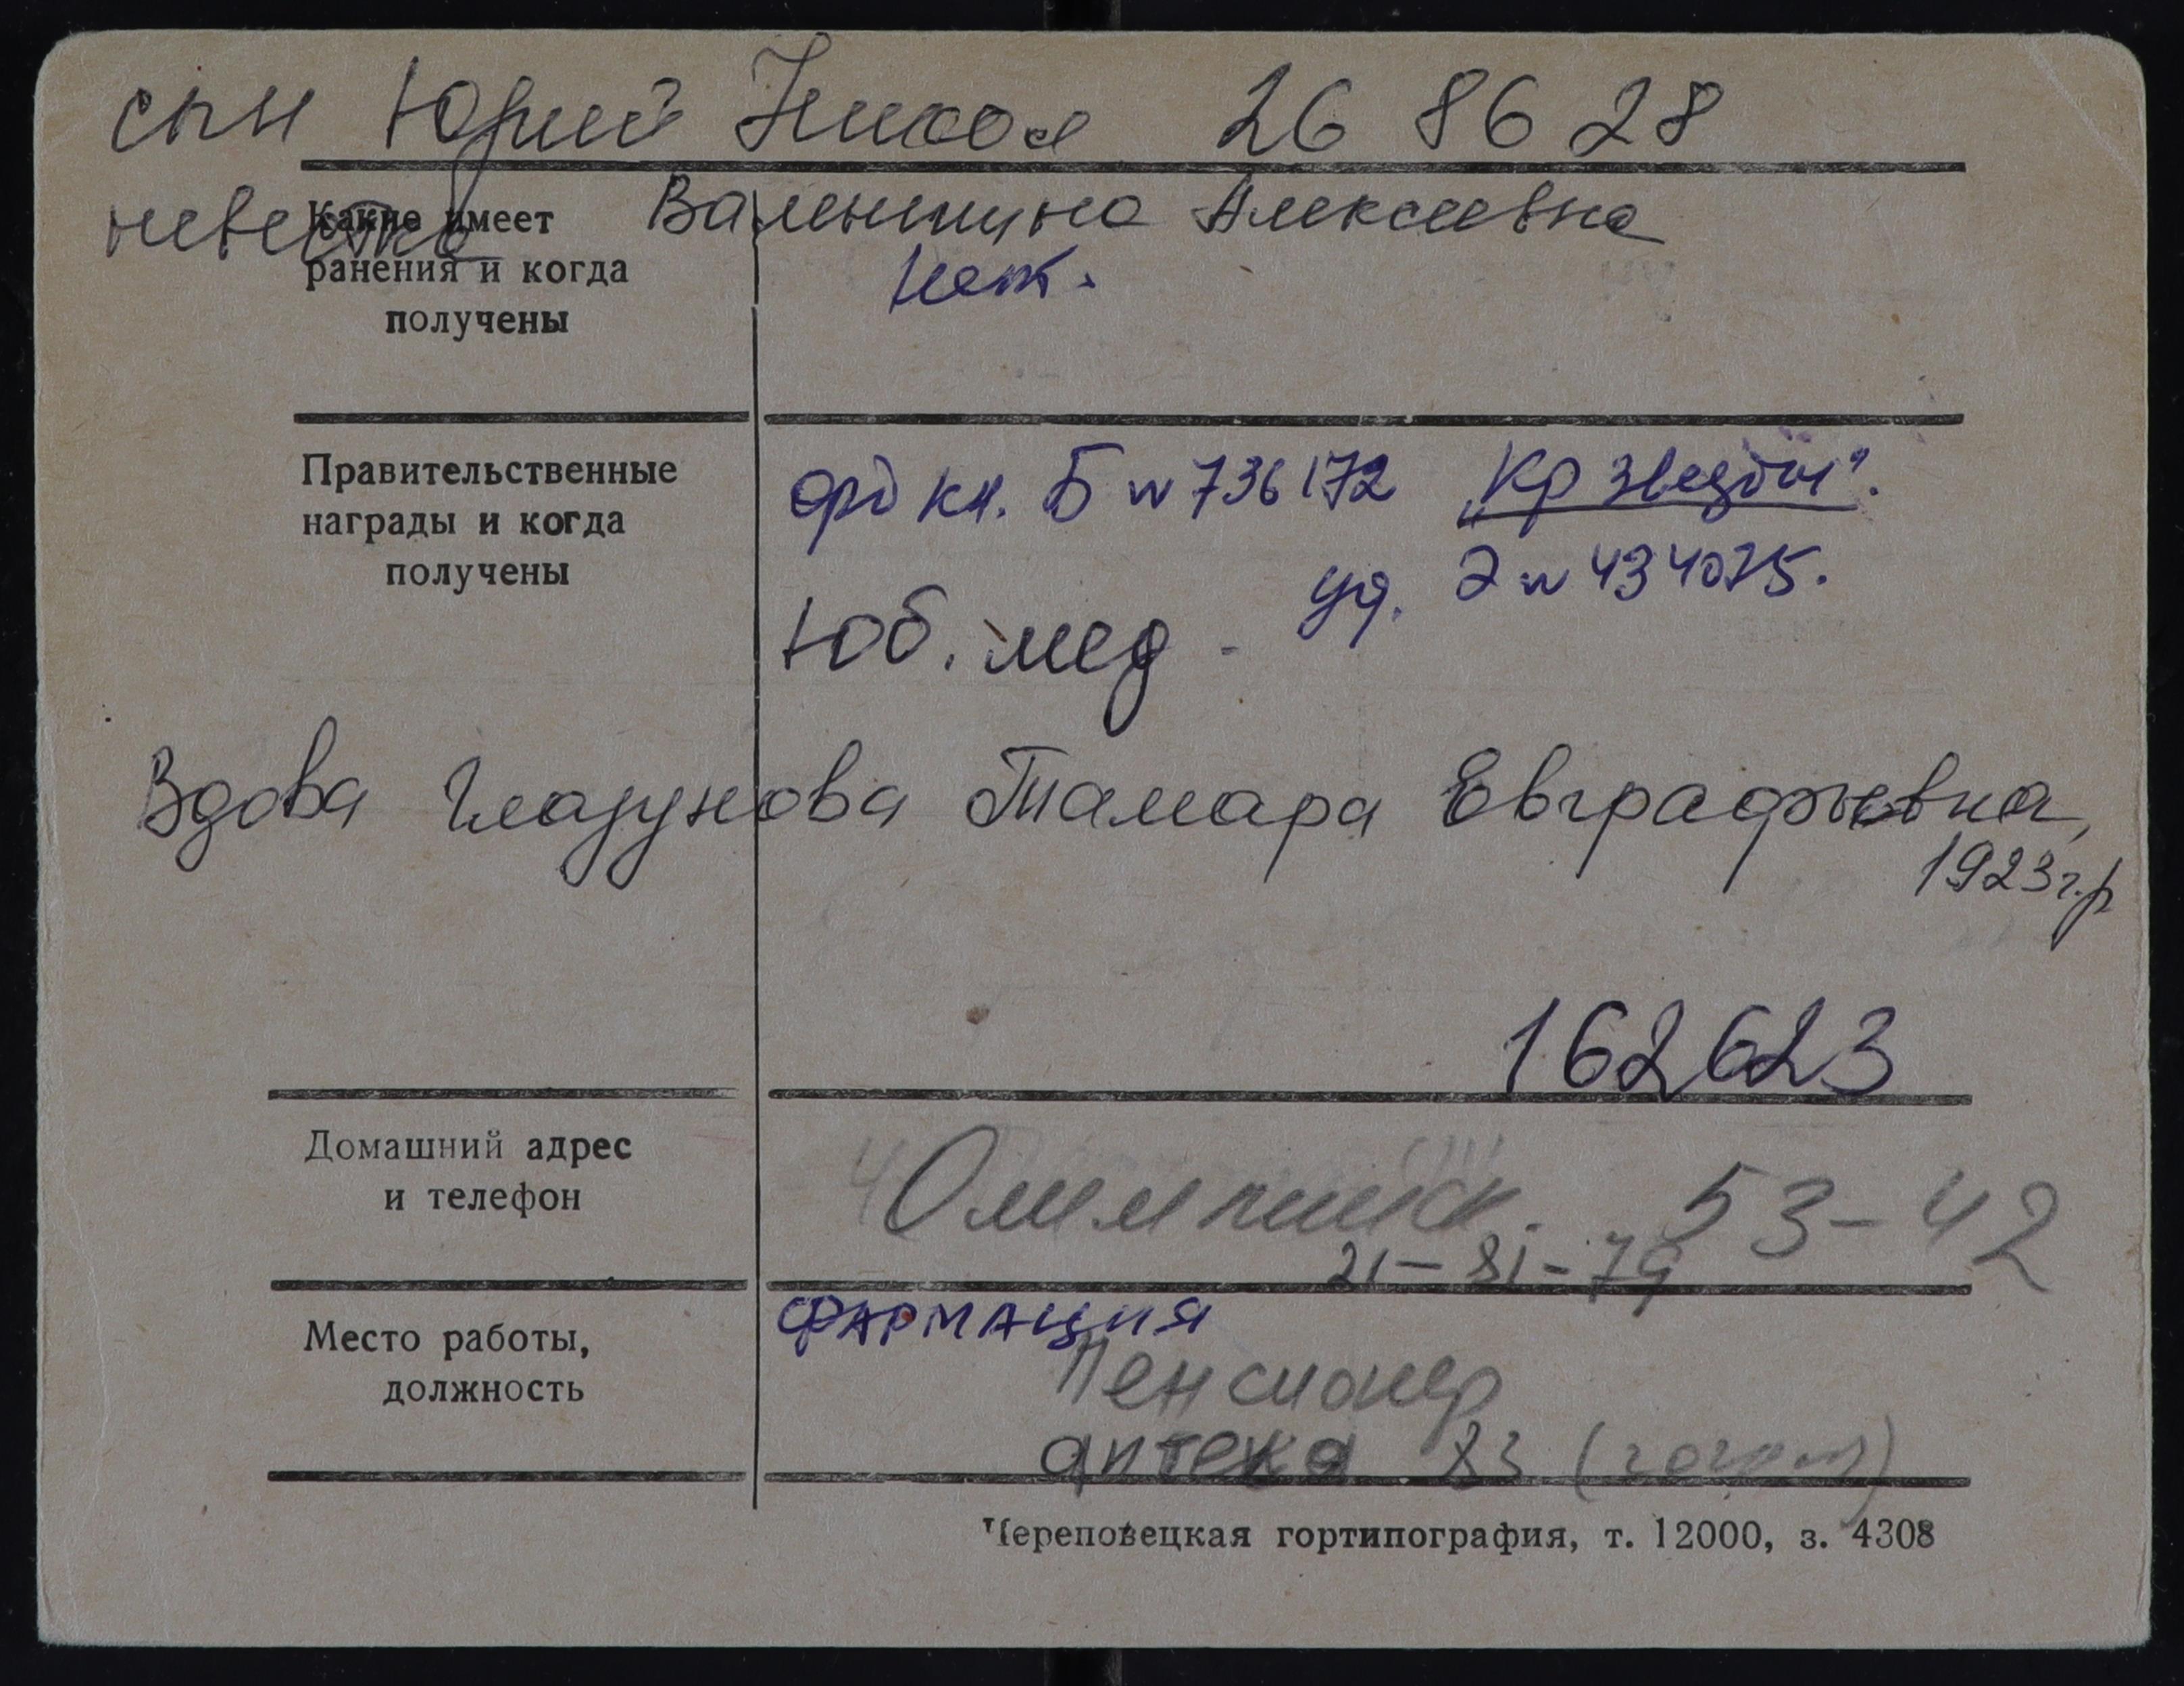 сын Юрий Никол 26 86 28
невестка Валентина Алексеевна
Какие имеет
ранения и когда
получены
нет.
Правительственные
награды и когда
получены
орд кн. Б №736172 „Кр звезды".
уд. Э №434075.
Юб. мед.
Вдова Глазунова Тамара Евграфьевна,
1923 г.р
162623
Домашний адрес
и телефон
Олимпийск. 53-42
21-81-79
Место работы,
должность
ФАРМАЦИЯ
Пенсионер
аптека 83
Череповецкая гортипография, т. 12000, з. 4308